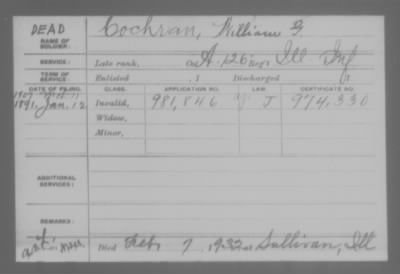 DEAD
NAME OF SOLDIER: Cochran, William G.
SERVICE: Late rank, Co. A. 126 Reg't Ill Inf
TERM OF SERVICE Enlisted , 1 Discharged , 1
DATE OF FILING. CLASS. APPLICATION NO. LAW. CERTIFICATE NO.
1907
1891. Jan. 12 Invalid, 981,846 J 974,330
Widow,
Minor,
ADDITIONAL SERVICES:
REMARKS:
Died Feb 7, 1932 at Sullivan, Ill